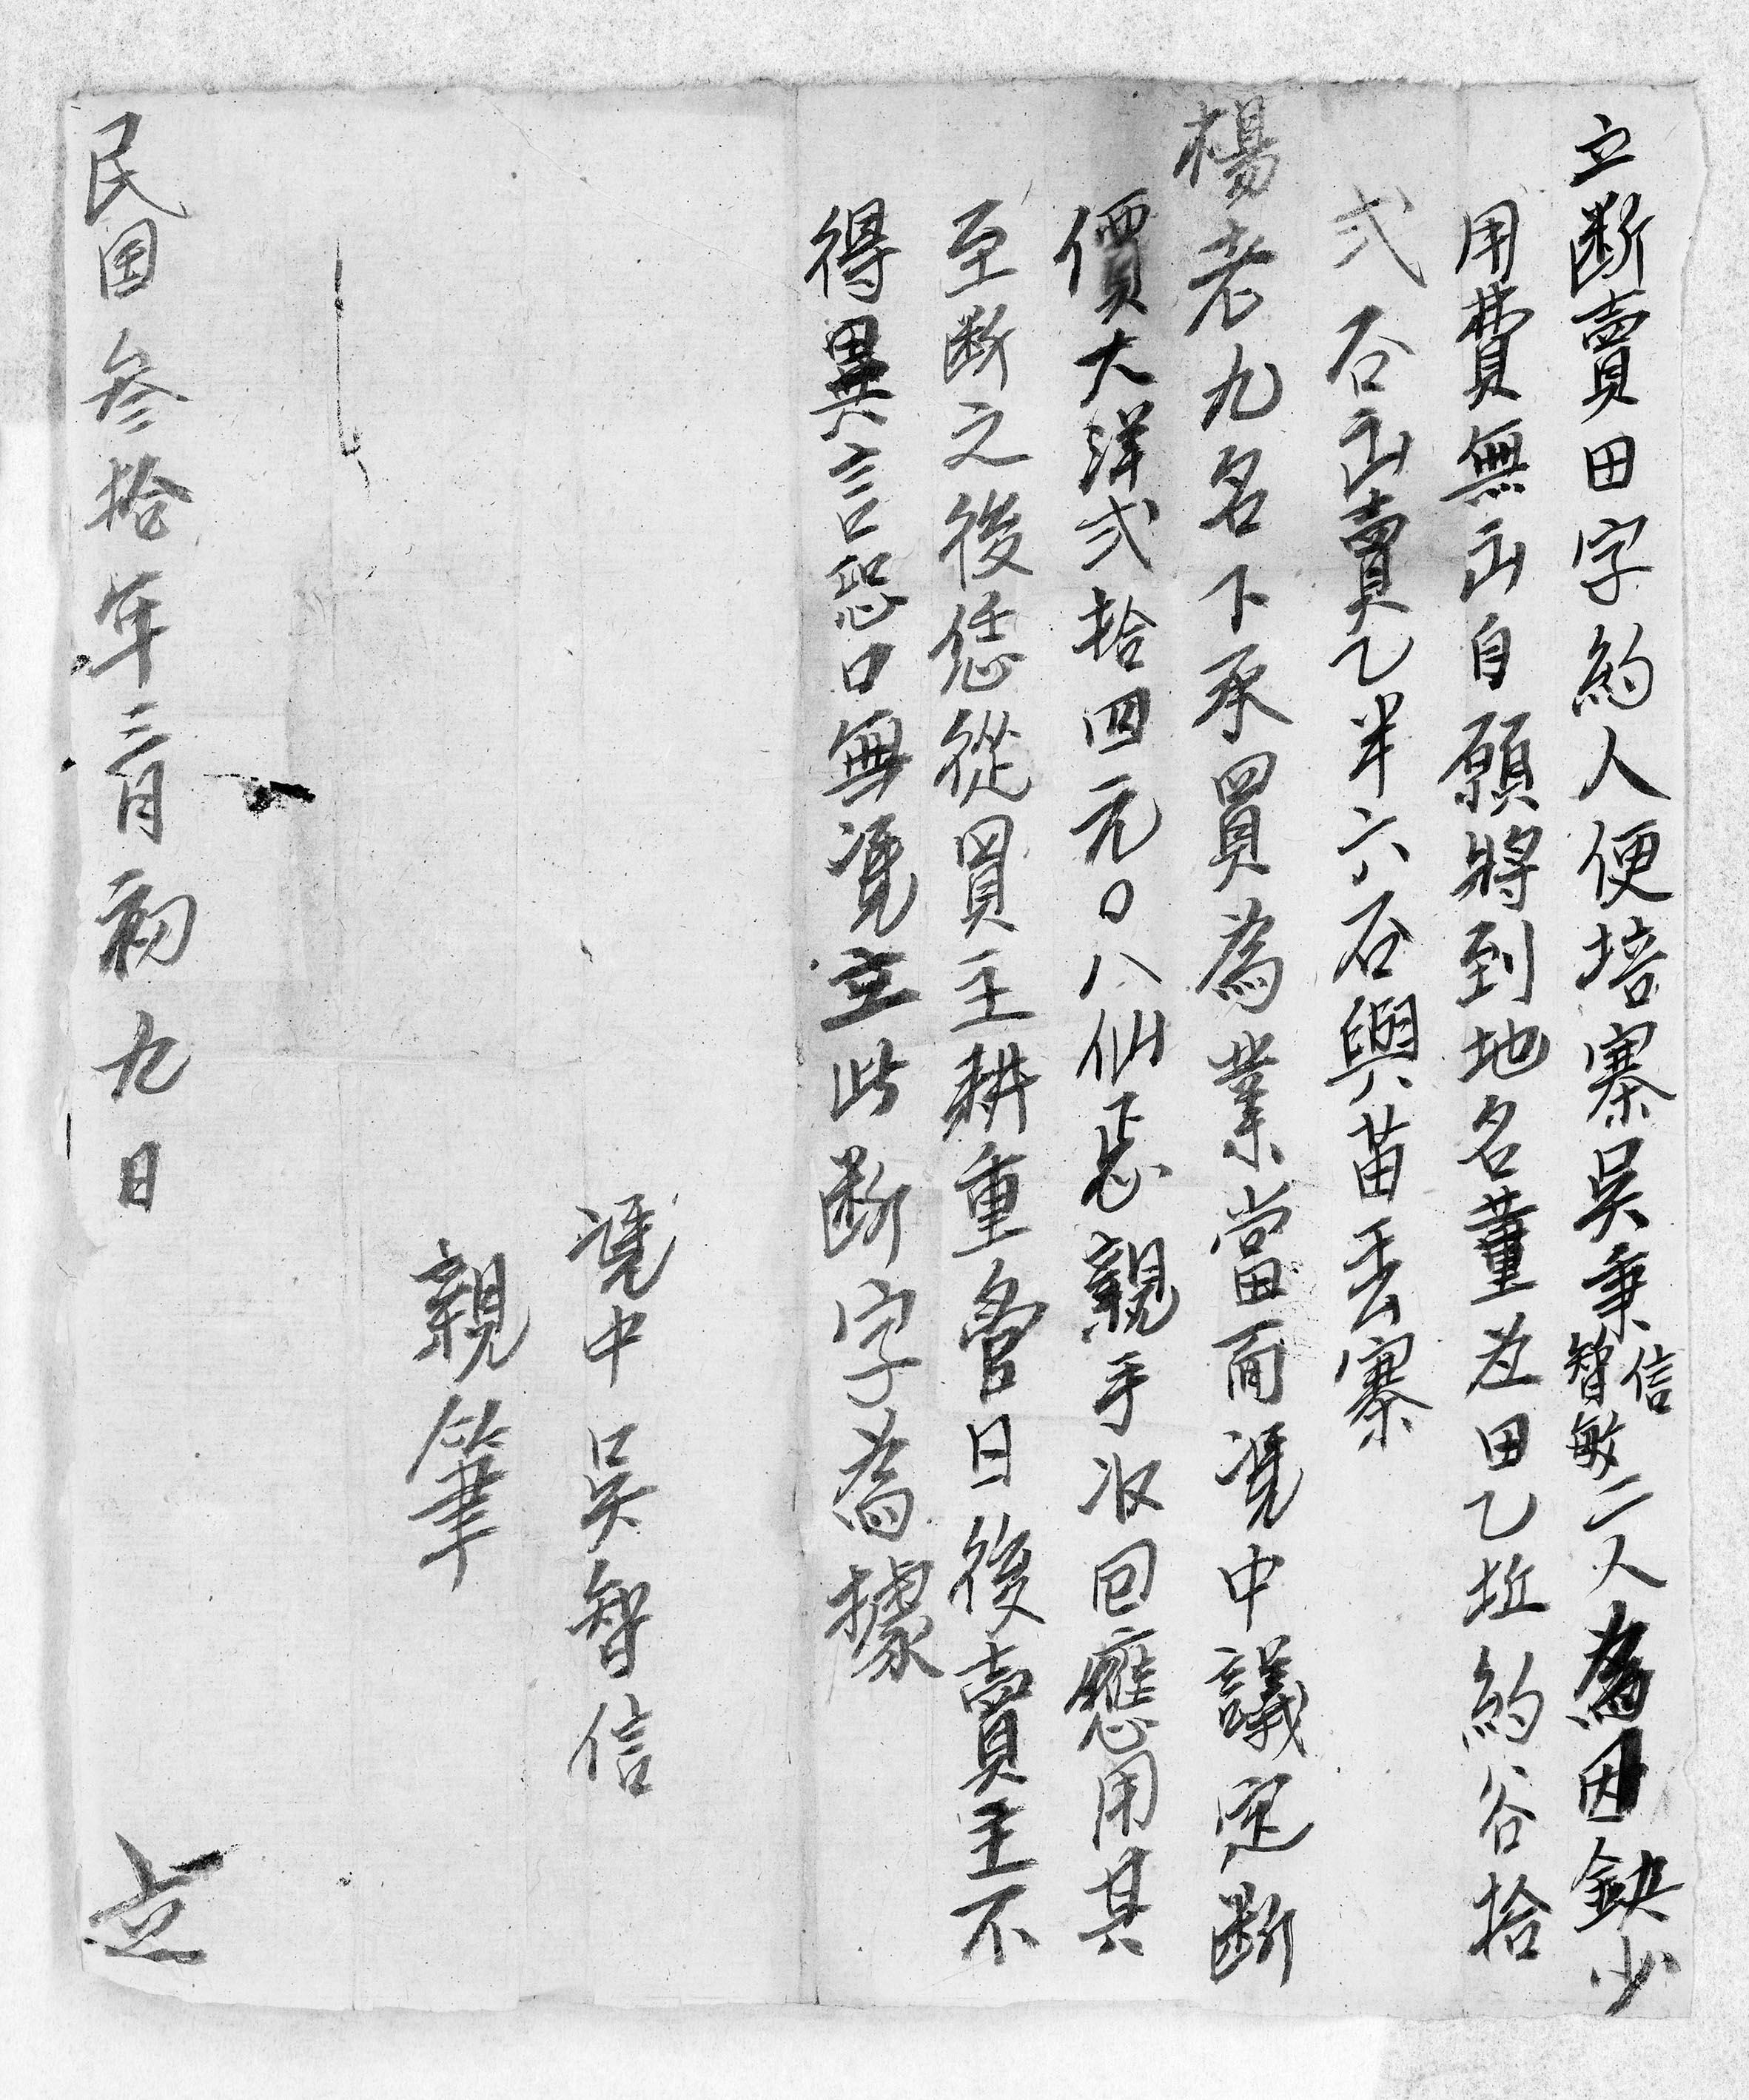 立断賣田字約人便培寨吴秉信智敏二人為因缺少
用費無出自願將到地名董在田乙坵約谷拾
弍石出賣乙半六石與苗丢寨
楊老九名下承買為業當面憑中議定断
價大洋弍拾四元〇八仙正親手收回應用其
至断之後恁從買主耕重管日後賣主不
得異言恐口無憑立此断字為據
憑中吴智信
親筆
民国叁拾年三月初九日 立